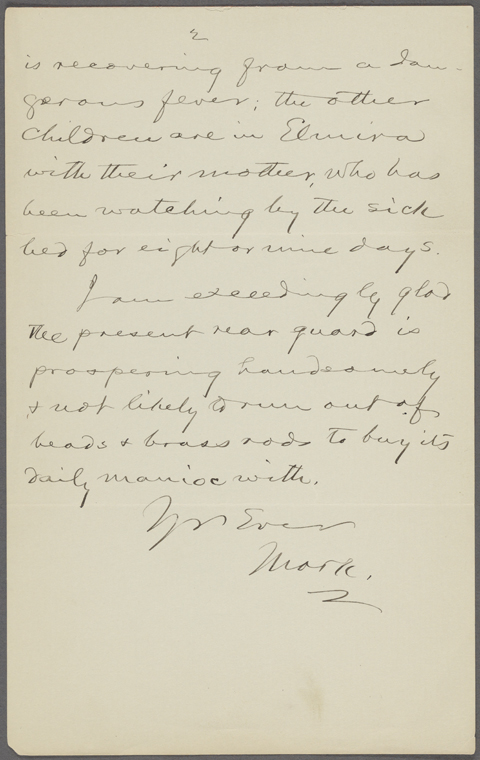 2
is recovering from a dan-
gerous fever; the other
children are in Elmira
with their mother, who has
been watching by the sick
bed for eight or nine days.
I am exceedingly glad
the present rear guard is
prospering handsomely
& not likely to run out of
beads & brass rods to buy its
daily manioc with.
Yrs Ever
Mark.